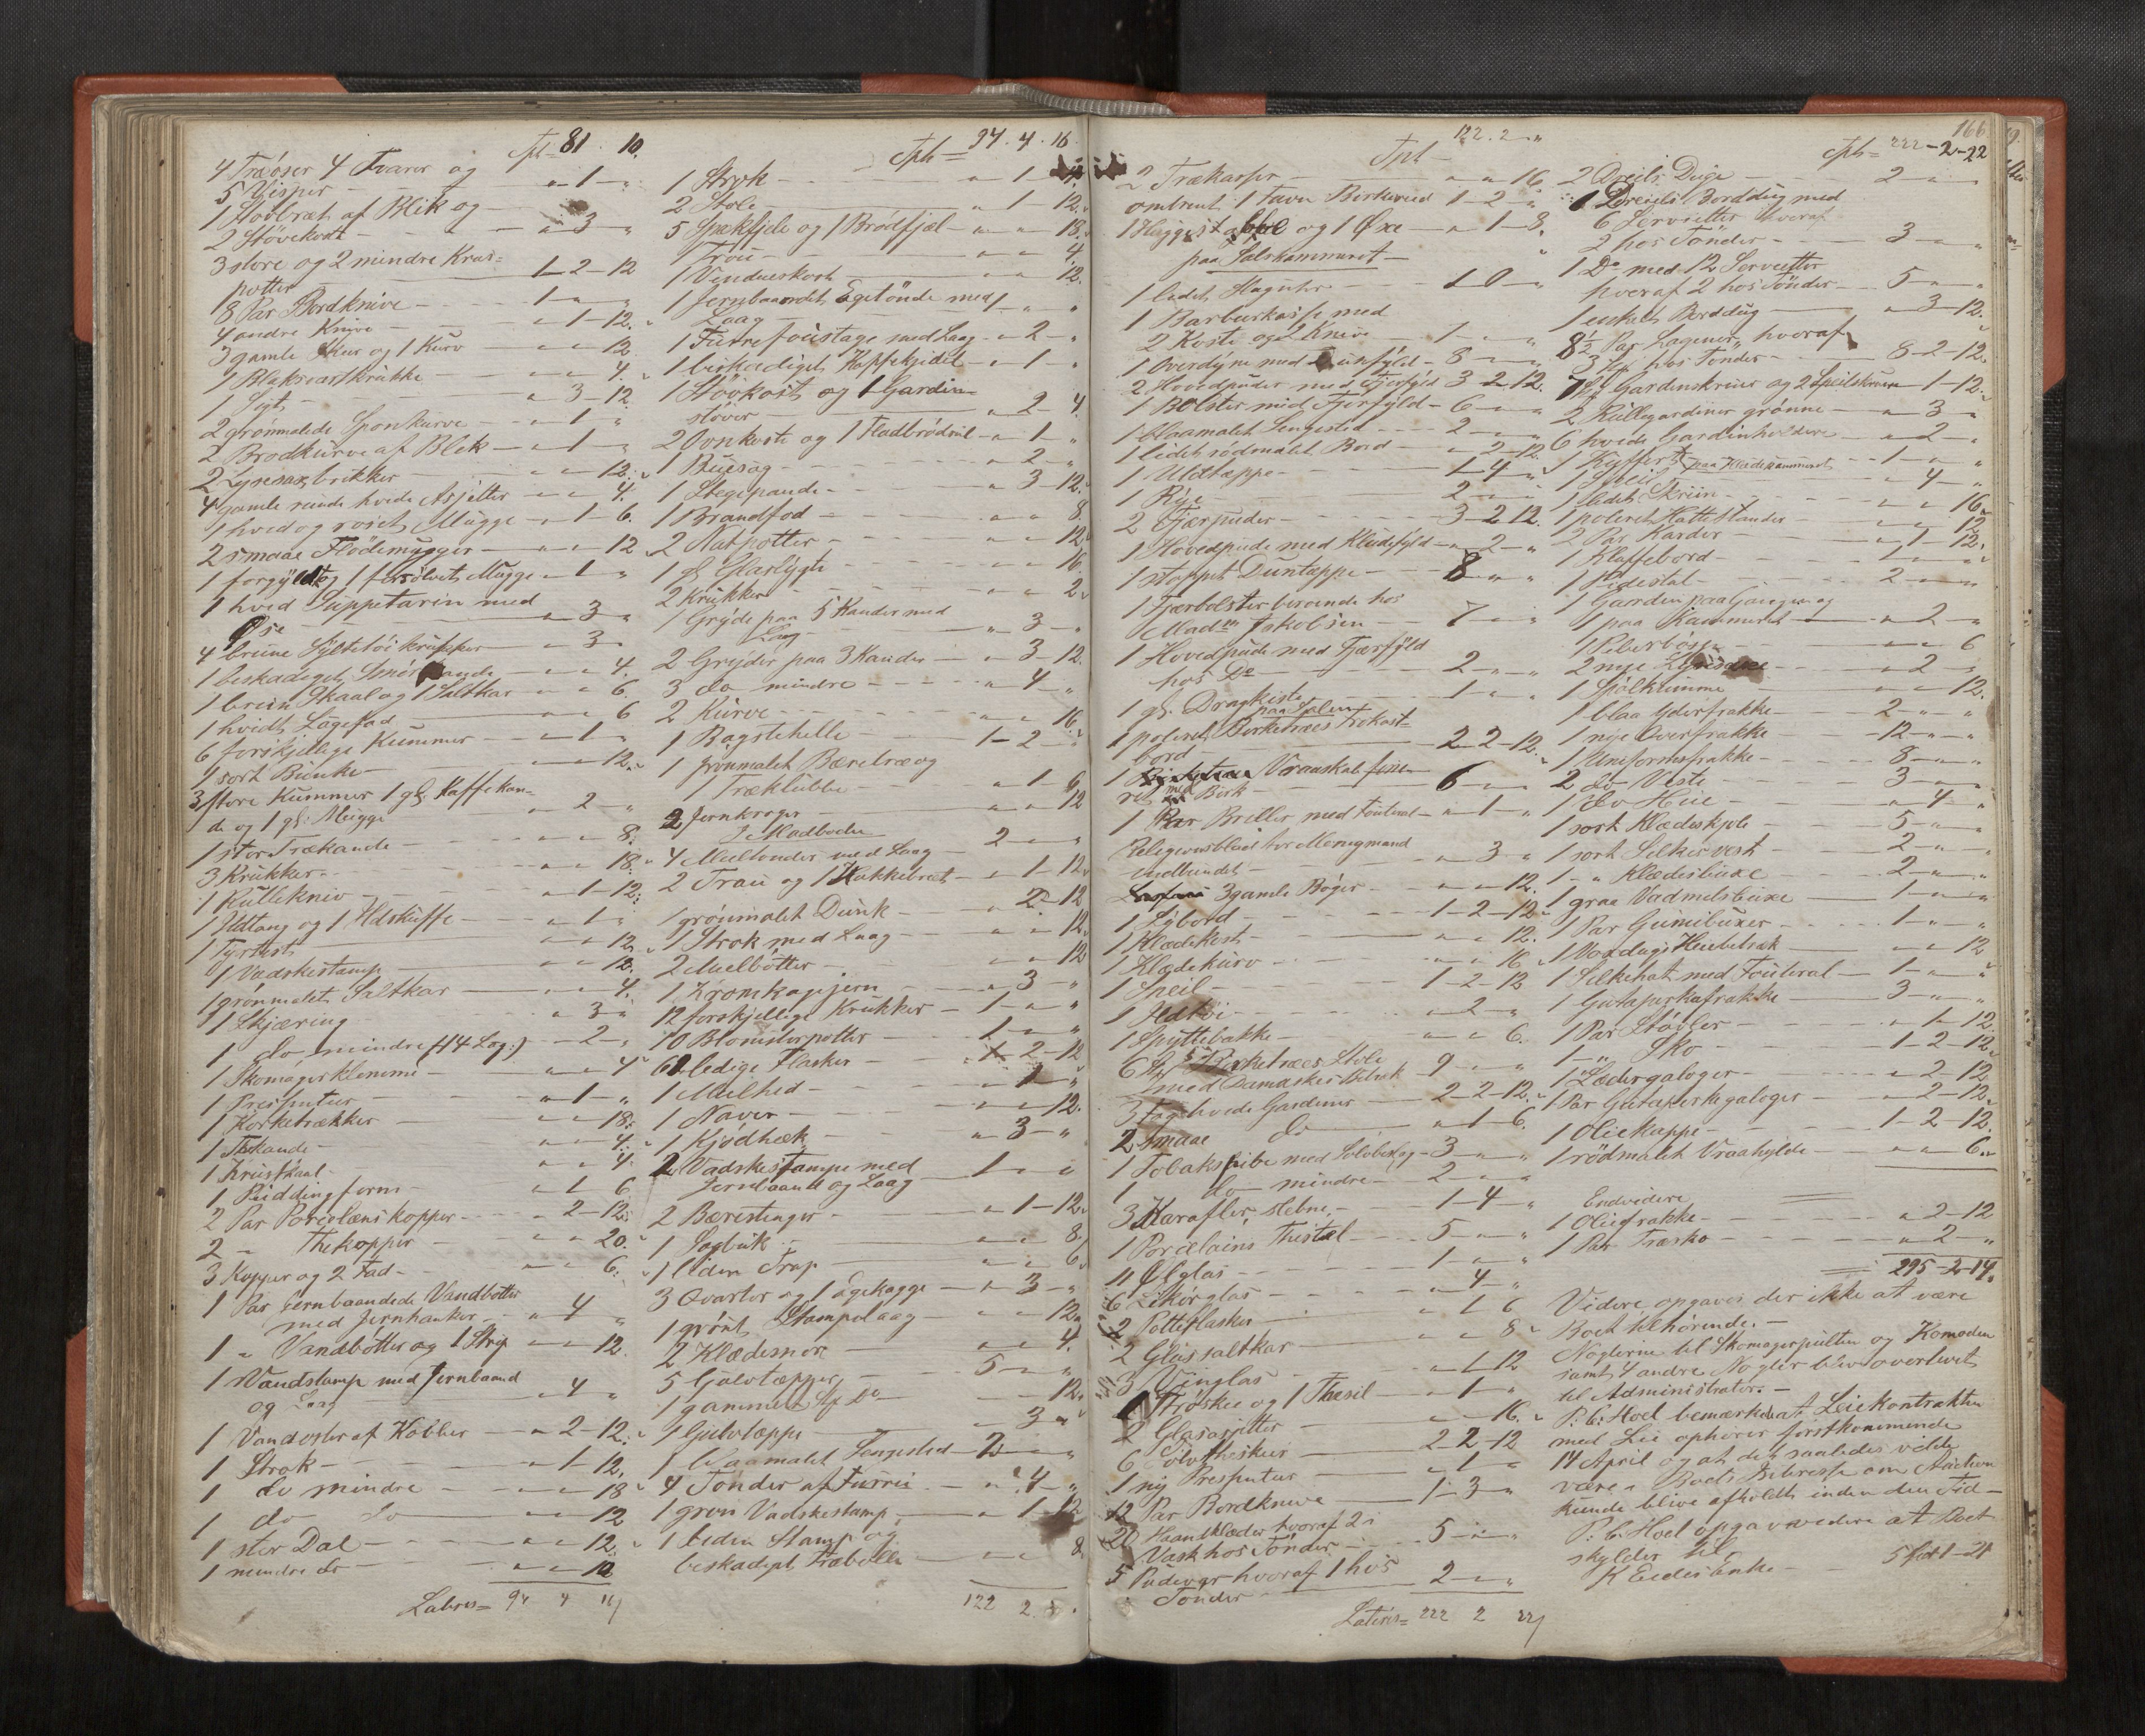 81 „ 10.
4 Træøser 4 Tvarer og
5 Visper - - „ - 1 - „
1 Støvbræt af Blik og
2 Støvekoste - - „ - 3 - „
3 store og 2 mindre Krus=
potter 1 - 2 - 12
18 Par Bordknive - 1 - „ - „
4 andre Knive - „ - 1 - 12.
3 gamle Skeer og 1 Kurv „ - „ - 12
1 Blaksvartkrukke - „ - „ - 4.
1 Sigt - „ - 3 - 12.
2 grønmalede Sponkurve - „ - 1 - „
2 Brødkurve af Blik - „ - 1 - „
2 Lysesaxbrikker „ - „ - 12.
4 gamle runde hvide Asjetter „ - „ - 4.
1 hvid og roset Mugge - „ - 1 - 6.
2 smaae Flødemugger - „ - „ - 12
1 forgyldt og 1 forsølvet Mugge „ - 1 - „
1 hvid Suppeterin med
Øse „ - 3 - „
4 brune Sylteløikrukker „ - 3 -
1 beskadiget Smør „ - „ - 4.
1 brun Skaal og 1 Saltkar „ - „ - 6.
1 hvidt Lagefad „ - „ - 6
6 forskjellige Kummer - „ - 1 - „
1 sort Bunke „ - „ - 12.
3 store Kummer 1 gl: Kaffekan=
de og 1 gl: Mugge „ - 2 - „
1 stor Trækande - „ - „ - 8.
3 Krukker - „ - „ - 18.
1 Rullekniv - „ - 1 - 12.
1 Ildtang og 1 Ildskuffe - „ - 1 - „
1 Fyrtist „ - „ - 12
1 Vadskestamp „ - „ - 12.
1 grønmalet Saltkar - „ - „ - 4.
1 Skjæring „ - 3 - „
1 do mindre (14 Lag:) - 2 - „
1 Skomagerklemme - „ - „ - 4
1 Presputur - „ - 1 - „
1 Korketrækker „ - „ - 18.
1 Thekande - „ - „ - 4.
1 Krustkaal - „ - „ - 4.
1 Puddingform - „ - 1 - 6
2 Par Porcelænskopper - „ - 2 - 12.
2 „ Thekopper „ - „ - 20.
3 Kopper og 2 Fad - „ - „ - 6.
1 Par jernbaandede Vandbøtter
med Jernhanker - „ - 4 - „
1 „ Vandbøtter og 1 Strip „ - „ - 12.
1 Vandstamp med Jernbaand
og Laag „ - 4 - „
1 Vandøster af Kobber - „ - 2 - 12.
1 Strok - „ - 1 - 12.
1 do mindre - „ - „ - 18
1 do do „ - „ - 12
1 stor Dal - „ - „ - 12.
1 mindre do - „ - „ - 12
Lateris= 94 4 16
Tpt= 94 . 4 . 16
1 Strok - „ - 1 -
2 Stole - „ - 1 - 12.
5 Spækfjele og 1 Brødfjæl - „ - „ - 18.
Trou - „ - „ - 4.
1 Vendueskost „ - „ - 12.
1 jernbaandet Egetønde med
Laag - 1 - „ - „
1 Furrefoustage med Laag - „ - 2 - „
1 beskadiget Kaffekjedel - „ - 1 - „
1 Støvkost og 1 Gardin=
støver „ - 2 - 4.
2 Ovnkoste og 1 Fladbrødsul - „ - 1 - „
1 Buesag - „ - 2 - „
1 Stegepande - „ - 3 - 12.
1 Brandfod - „ - „ - 8.
2 Natpotter - „ - „ - 12.
1 gl Glaslygte - „ - „ - 16.
2 Krukker - „ - „ - 2.
1 Gryde paa 5 Kander med
Laag „ - 3 - „
2 Gryder paa 3 Kander - „ - 3 - 12.
3 do mindre - „ - 4 - „
2 Kurve - „ - „ - 16.
1 Bagstehelle - 1 - 2 - „
1 grønmalet Bæretræ og
1 Træklubbe - „ - 1 - 6.
2 Jernkroger - „ - „ - 12
I Madboden
4 Meeltønder med Laag 2 - „ - „
2 Trau og 1 Hakkebræt - „ - 1 - 12.
1 grønmalet Dunk - „ - 2 - 12
1 Strok med Laag - „ - „ - 12.
2 Meelbøtter - „ - „ - 12
1 Kromkagejern - „ - 3 - „
12 forskjellige Krukker - 1 - „ - „
10 Blomsterpotter - 1 - „ - „
60 ledige Flasker - 2 - 12
1 Meelhed - „ - 1 - „
1 Naver - „ - „ - 12.
1 Kjødhæk „ - 3 - „
2 Vadskestampe med
Jernbaand og Laag 1 - „ - „
2 Bærestenger - „ - 1 - 12.
1 Sagbuk - „ - „ - 8.
1 liden Trap - „ - „ - 6.
3 Qvarter og 1 Øgekagge - „ - 3 - „
1 grønt Stampelaag „ - „ - 12.
2 Klædesnore „ - „ - 4.
5 Gulvtæpper 5 - „ - „
1 gammelt Stk Do - „ - „ - 12.
1 Gulvtæppe - „ - 3 - „
1 blaamalet Sengested - 2 - „ - „
4 Tønder af Furru - „ - 4 - „
1 grøn Vadskestamp - „ - 1 - 12
1 liden Stamp og
beskadiget Træbolle „ - „ - 8.
122 2 „
Tpt - 122 . 2 - „
2 Trækarper - „ - „ - 16
omtrent 1 Favn Birkeved 1 - 2 - „
1 Huggestabbe og 1 Øxe - „ - 1 - 8.
paa Salskammeret -
1 lidet Slaguhr - 10 - „
1 Barberkasse med
2 Koste og 2 Knive 1 - „ - „
1 Overdyne med Dunfyld - 8 - „ - „
2 Hovedpuder med Fjerfyld 3 - 2 - 12.
1 Bolster med Fjerfyld - 6 - „ - „
1 blaamalet Sengested - 2 - „ - „
1 lidet rødmalet Bord - „ - 2 - 12.
1 Uldtæppe - 1 - 4 - „
1 Rye - 2 - „ - „
2 Fjærpuder - 3 - 2 - 12.
1 Hovedpude med Kludefyld - „ - 2 - „
1 stoppet Duntæppe - 8 - „ - „
1 Fjærbolster beroende hos
Madm Jakobsen - 7 - „ - „
1 Hovedpude med Fjærfyld
hos Do 2 - „ - „
1 gl. Dragkiste 1 - „ - „
paa Salen
1 poleret Birketræes Frokost=
bord 2 - 2 - 12.
1 Vraaskab finer=
ret med Birk - 6 - „ - „
1 Par Briller med Fouteral - „ - 1 - „
Religionsblad for Menigmand
indbundet „ - 3 - „
3 gamle Bøger - „ - „ - 12.
1 Sybord - 1 - 2 - 12.
1 Klædekost - „ - „ - 12.
1 Klædekurv - „ - „ - 16.
1 Speil - 1 - 2 - 12
1 Ildtøi - „ - 2 - „
1 Spyttebakke - „ - „ - 6.
6 Stk Birketræes Stole
med Damaskes Betræk 9 - „ - „
3 Fag hvide Gardiner - 2 - 2 - 12.
2 smaae do - „ - 1 - 6.
1 Tobakspibe med Sølvbeslag - 3 - „ - „
1 do mindre - 2 - „ - „
3 Karafler, slebne, - 1 - 4 - „
1 Porcelains Thestel - 5 - „ - „
11 Ølglas - 1 - „ - „
6 Likørglas - „ - 4 - „
2 Potteflasker - „ - 1 - 6
2 Glassaltkar - „ - „ - 8
3 Vinglas - „ - 1 - 12
1 Strøskee og 1 Thesil - „ - 1 - „
2 Glasasjetter - „ - „ - 16.
6 Sølvtheskeer - 2 - 2 - 12
1 ny Presputur - „ - 1 - „
12 Par Bordknive - 1 - 3 - „
20 Haandklæder hvoraf 2 i
Vask hos Tønder - 5 - „ - „
5 Pudevar hvoraf 1 hos
Tønder - 2 - „ - „
Lateris= 222 2 22
166
Tpt= 222 - 2 - 22
2 Dreils Duge - 2 - „ - „
1 Dreiels Borddug med
6 Servietter hvoraf
2 hos Tønder - 3 - „ - „
1 Do med 12 Servietter
hvoraf 2 hos Tønder - 5 - „ - „
1 enkelt Borddug - „ - 3 - 12.
8½ Par Lagener, hvoraf
3 Stk hos Tønder - 8 - 2 - 12.
Gardinskruer og 2 Speilskruer - 1 - 12.
2 Rullegardiner grønne - „ - 3 - „
6 hvide Gardinholdere - „ - 2 - „
1 Kuffert paa Klædekammeret - 1 - „ - „
1 Speil - „ - 4 - „
1 lidet Skriin - „ - „ - 16.
1 poleret Hattestander - „ - „ - 12.
2 Par Karder - „ - 1 - 12.
1 Klaffebord - 1 - „ - „
1 Pidestal - 2 - „ - „
1 Gardin paa Gangen og
1 paa Kammeret - „ - 2 - „
1 Peberbøsse - „ - „ - 6
2 nye - „ - 2 - „
1 Spølkumme - „ - „ - 12.
1 blaa Yderfrakke - 2 - „ - „
1 nye Overfrakke - 12 - „ - „
1 Uniformsfrakke - 8 - „ - „
2 do Veste - 3 - „ - „
1 do Hue - „ - 4 - „
1 sort Klædeskjole - 5 - „ - „
1 sort Silkevest - 2 - „ - „
1 „ Klædesbuxe - 2 - „ - „
1 graa Vadmelsbuxe - 1 - „ - „
1 Par Gumibuxer - 1 - „ - „
1 Voxdugs Huebetræk - „ - „ - 12
1 Silkehat med Fouteral - 1 - „ - „
1 Gutaperkafrakke - 3 - „ - „
1 Par Støvler - „ - 1 - 12.
1 „ Sko - 1 - 2 - 12.
1 „ Lædergaloger - „ - 2 - 12
1 Par Gutaperkagaloger - „ - 2 - 12.
1 Oliekappe - 1 - 2 - 12.
1 rødmalet Vraahylde - „ - „ - 6.
Endvidere
1 Oliefrakke - „ - 2 - 12
1 Par Træsko - „ - 2 - „
295 - 2 - 14.
Videre opgaves der ikke at være
Boet tilhørende. -
Nøglerne til Skomagerpulten og Komoden
samt 4 andre Nøgler blev overleveret
til Administrator. -
P: C: Hoel bemærkede at Leiekontrakten
med Leie ophører førstkommende
14 April og at det saaledes vilde
være i Boets Interesse om Auction
kunde blive afholdt inden den Tid -
P. C. Hoel opgav videre at Boet
skylder til
K Eides Enke - 5 Spd 1 - 21